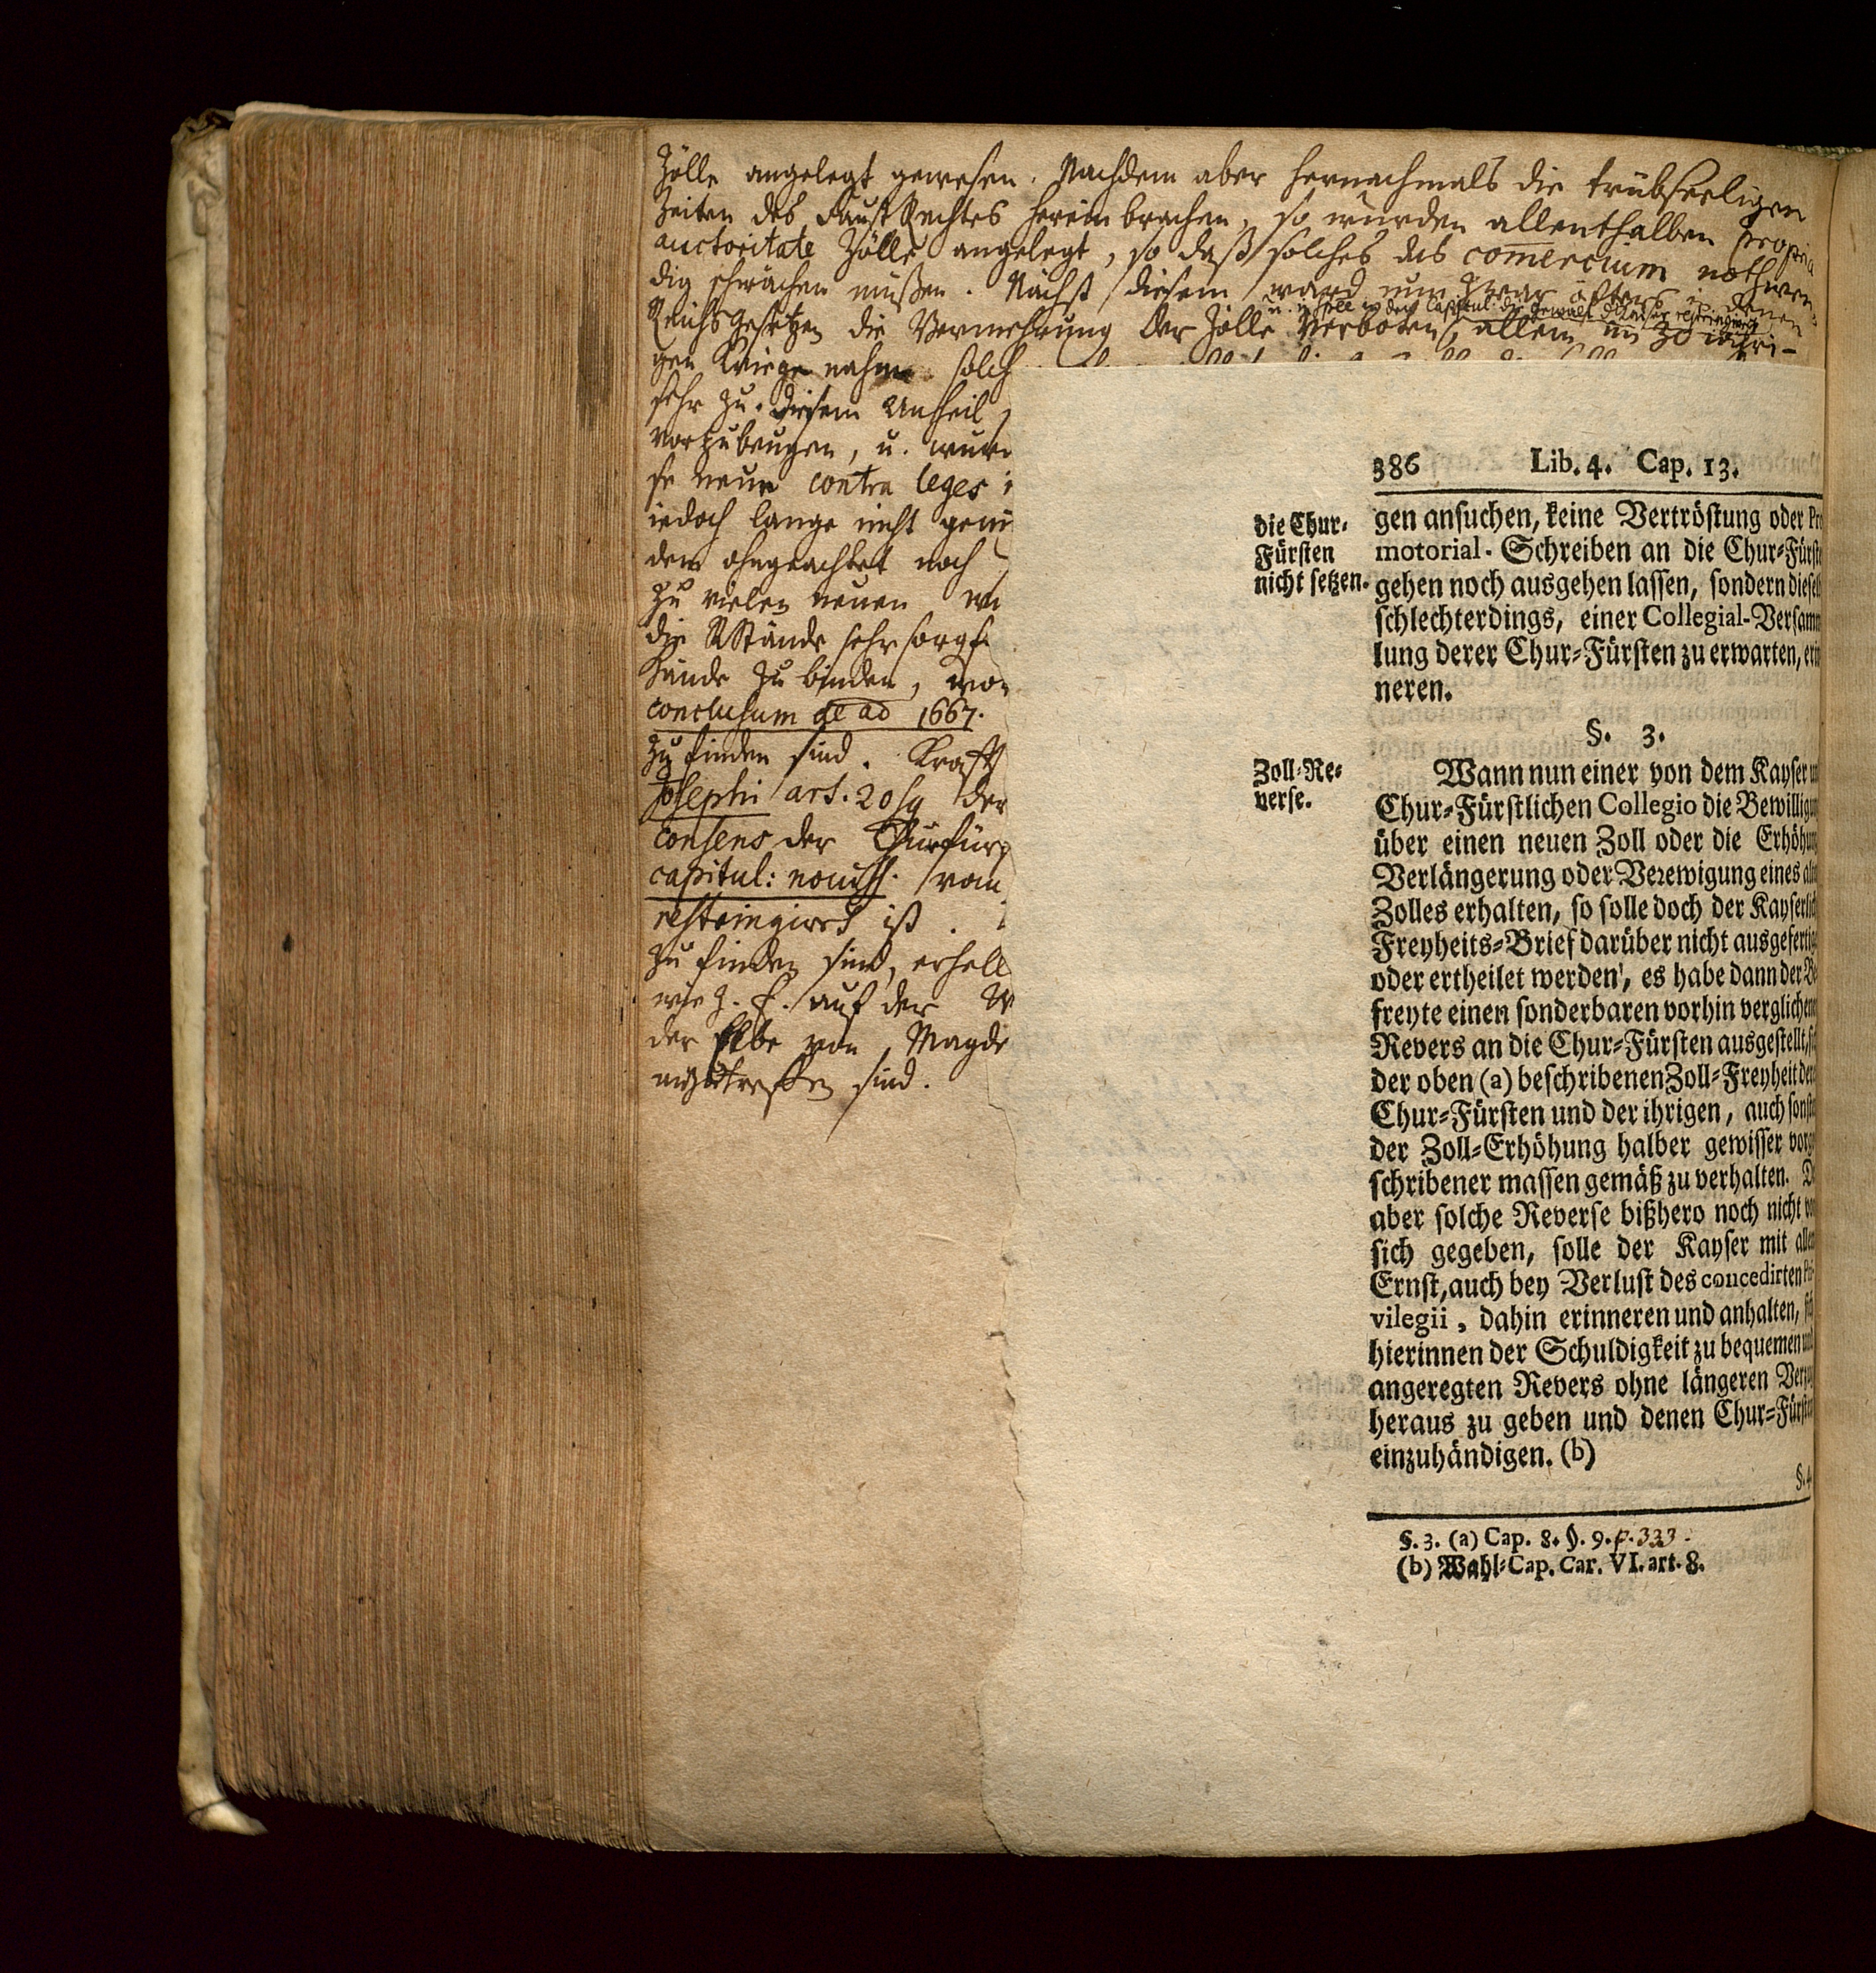 Zölle angelegt gewesen. Nachdem aber hernachmals die trübseeligen
Zeiten des Faust Rechtes herein brachen, so wurden allenthalben propria
auctoritate Zölle angelegt, so daß solches das comercium nothwen-
dig schwächen müßen. Nächst diesem ward nun zwar öfters in denen
Reichsgesetzen die Vermehrung der Zölle verboten, allein im 30 iähri-
gen Kriege nahm solch
sehr zu. diesem Unheil
vorzubeugen, u. wur
se neue contra leges
iedoch lange nicht
dem ohngeachtet noch
zu vielen neuen
die RStände sehr sorgf
Hände zu binden, wo
conclusum de ao 1667.
zu finden sind. Krafft
Josephi art. 20 sq der
consens der Churfür
capitul: noviss. vom
restringirt ist.
zu finden sind, erhell
wie z. E. auf der W
der Elbe von Magde
anzutreffen sind.
386 Lib. 4. Cap. 13.
die Chur-
Fürsten
nicht setzen.
gen ansuchen, keine Vertröstung oder Pro
motorial-Schreiben an die Chur-Fürste
gehen noch ausgehen lassen, sondern diesel
schlechterdings, einer Collegial-Versamm
lung derer Chur-Fürsten zu erwarten, erin
neren.
§. 3.
Zoll-Re-
verse.
Wann nun einer von dem Kayser un
Chur-Fürstlichen Collegio die Bewilligun
über einen neuen Zoll oder die Erhöhun
Verlängerung oder Verewigung eines alte
Zolles erhalten, so solle doch der Kayserlich
Freyheits-Brief darüber nicht ausgefertig
oder ertheilet werden, es habe dann der Be
freyte einen sonderbaren vorhin verglichenen
Revers an die Chur-Fürsten ausgestellt, si
der oben (a) beschribenen Zoll-Freyheit der
Chur-Fürsten und der ihrigen, auch sonste
der Zoll-Erhöhung halber gewisser vorge
schribener massen gemäß zu verhalten. De
aber solche Reverse bißhero noch nicht vo
sich gegeben, solle der Kayser mit allem
Ernst, auch bey Verlust des concedirten Pri
vilegii, dahin erinneren und anhalten, sich
hierinnen der Schuldigkeit zu bequemen und
angeregten Revers ohne längeren Verzug
heraus zu geben und denen Chur-Fürsten
einzuhändigen. (b)
§. 4.
§. 3. (a) Cap. 8. §. 9. p. 333.
(b) Wahl-Cap. Car. VI. art. 8.